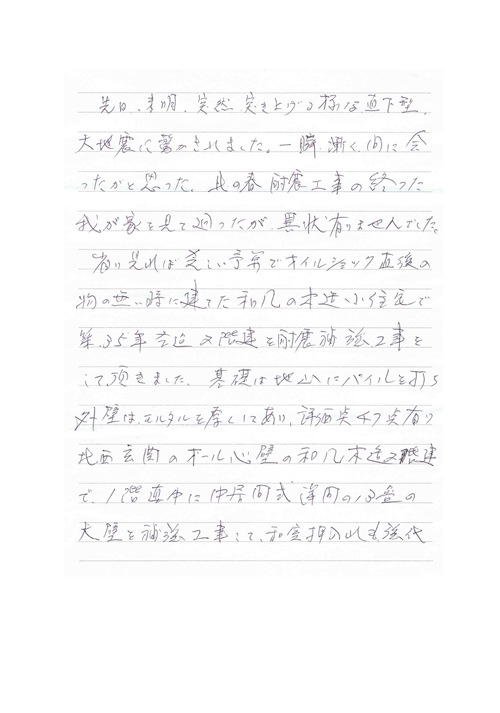 先日、未明、突然突き上げる様な直下型、
大地震に驚かされました。一瞬、漸く間に合
ったかと思った。此の春耐震工事の終った
我が家を見て廻ったが、異状有りませんでした。
省り見れば乏しい予算でオイルショック直後の
物の無い時に建てた和風の木造小住宅で
築、35年 2階建を耐震補強工事を
して頂きました。基礎は地山にパイルを打ち
外壁は、モルタルを厚くしてあり、評価点 有り
北西玄関のホール心壁の和風木造2階建
で、1階真中に 洋間の 畳の
大壁を補強工事して、和室押入れも強化